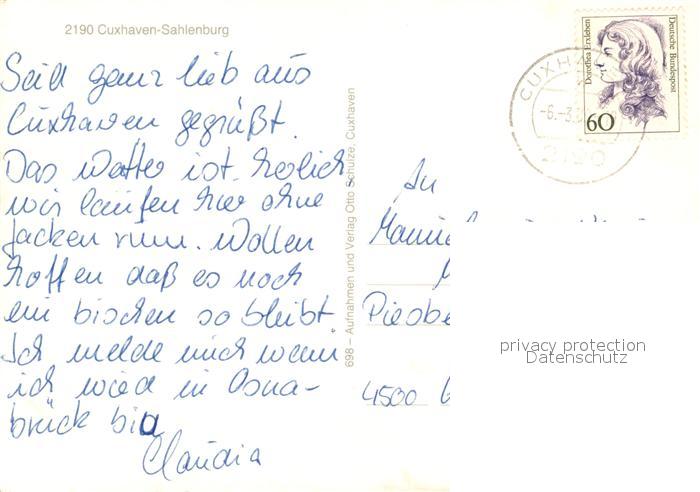 2190 Cuxhaven-Sahlenburg
Seid ganz lieb aus
Cuxhaven gegrüßt.
Das Wetter ist herlich
wir laufen hier ohne
Jacken rum. Wollen
hoffen daß es noch
ein bischen so bleibt.
Ich melde mich wenn
ich wied in Osna-
brück bin
Claudia
698 – Aufnahmen und Verlag Otto Schulze, Cuxhaven
An
4500
Dorothea Erxleben
Deutsche Bundespost
60
CUXHA
-6.-3.
2190
privacy protection
Datenschutz